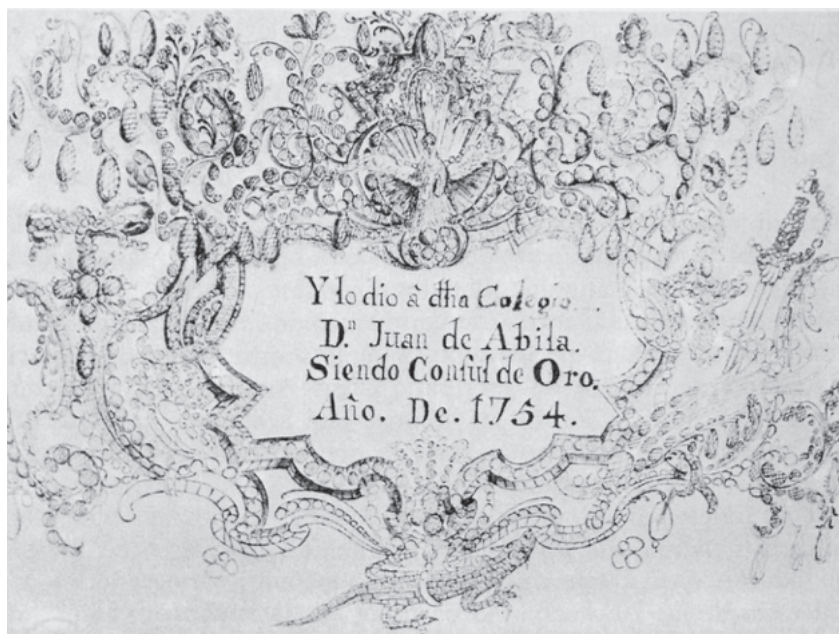 Y lo dio à dħa Colegio
D.ⁿ Juan de Abila.
Siendo Consul de Oro.
Año. De. 1754.